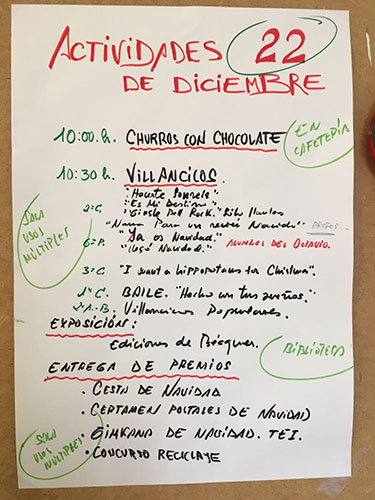 ACTIVIDADES 22
DE DICIEMBRE
10:00.h. CHURROS CON CHOCOLATE
EN CAFETERÍA
10:30 h. VILLANCICOS.
SALA
USOS
MÚLTIPLES
"Es Mi Destino"
Rock."
"Nana Para un
PROFES...
"Ya es Navidad."
ALUMNOS DEL OCTAVIO.
Navidad."
3º C "I want a hippopotamus for Christmas".
1º C. BAILE. "Hecho con tus sueños."
2º A-B. Villancicos Populares.
EXPOSICIÓN:
Ediciones de Bécquer.
BIBLIOTECA
ENTREGA DE PREMIOS
• CESTA DE NAVIDAD
• CERTAMEN POSTALES DE NAVIDAD
SALA
USOS
MÚLTIPLES
• GIMKANA DE NAVIDAD. TEI.
• CONCURSO RECICLAJE